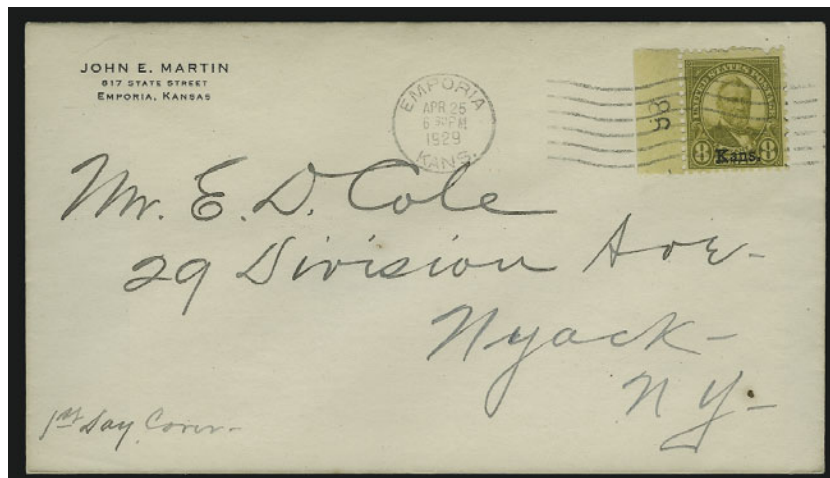 JOHN E. MARTIN
817 STATE STREET
EMPORIA, KANSAS
EMPORIA
APR 25
6 30 PM
1929
KANS.
UNITED STATES POSTAGE
8 Kans. 8
Mr. E. D. Cole
29 Division Ave-
Nyack-
NY-
1st Day Cover-